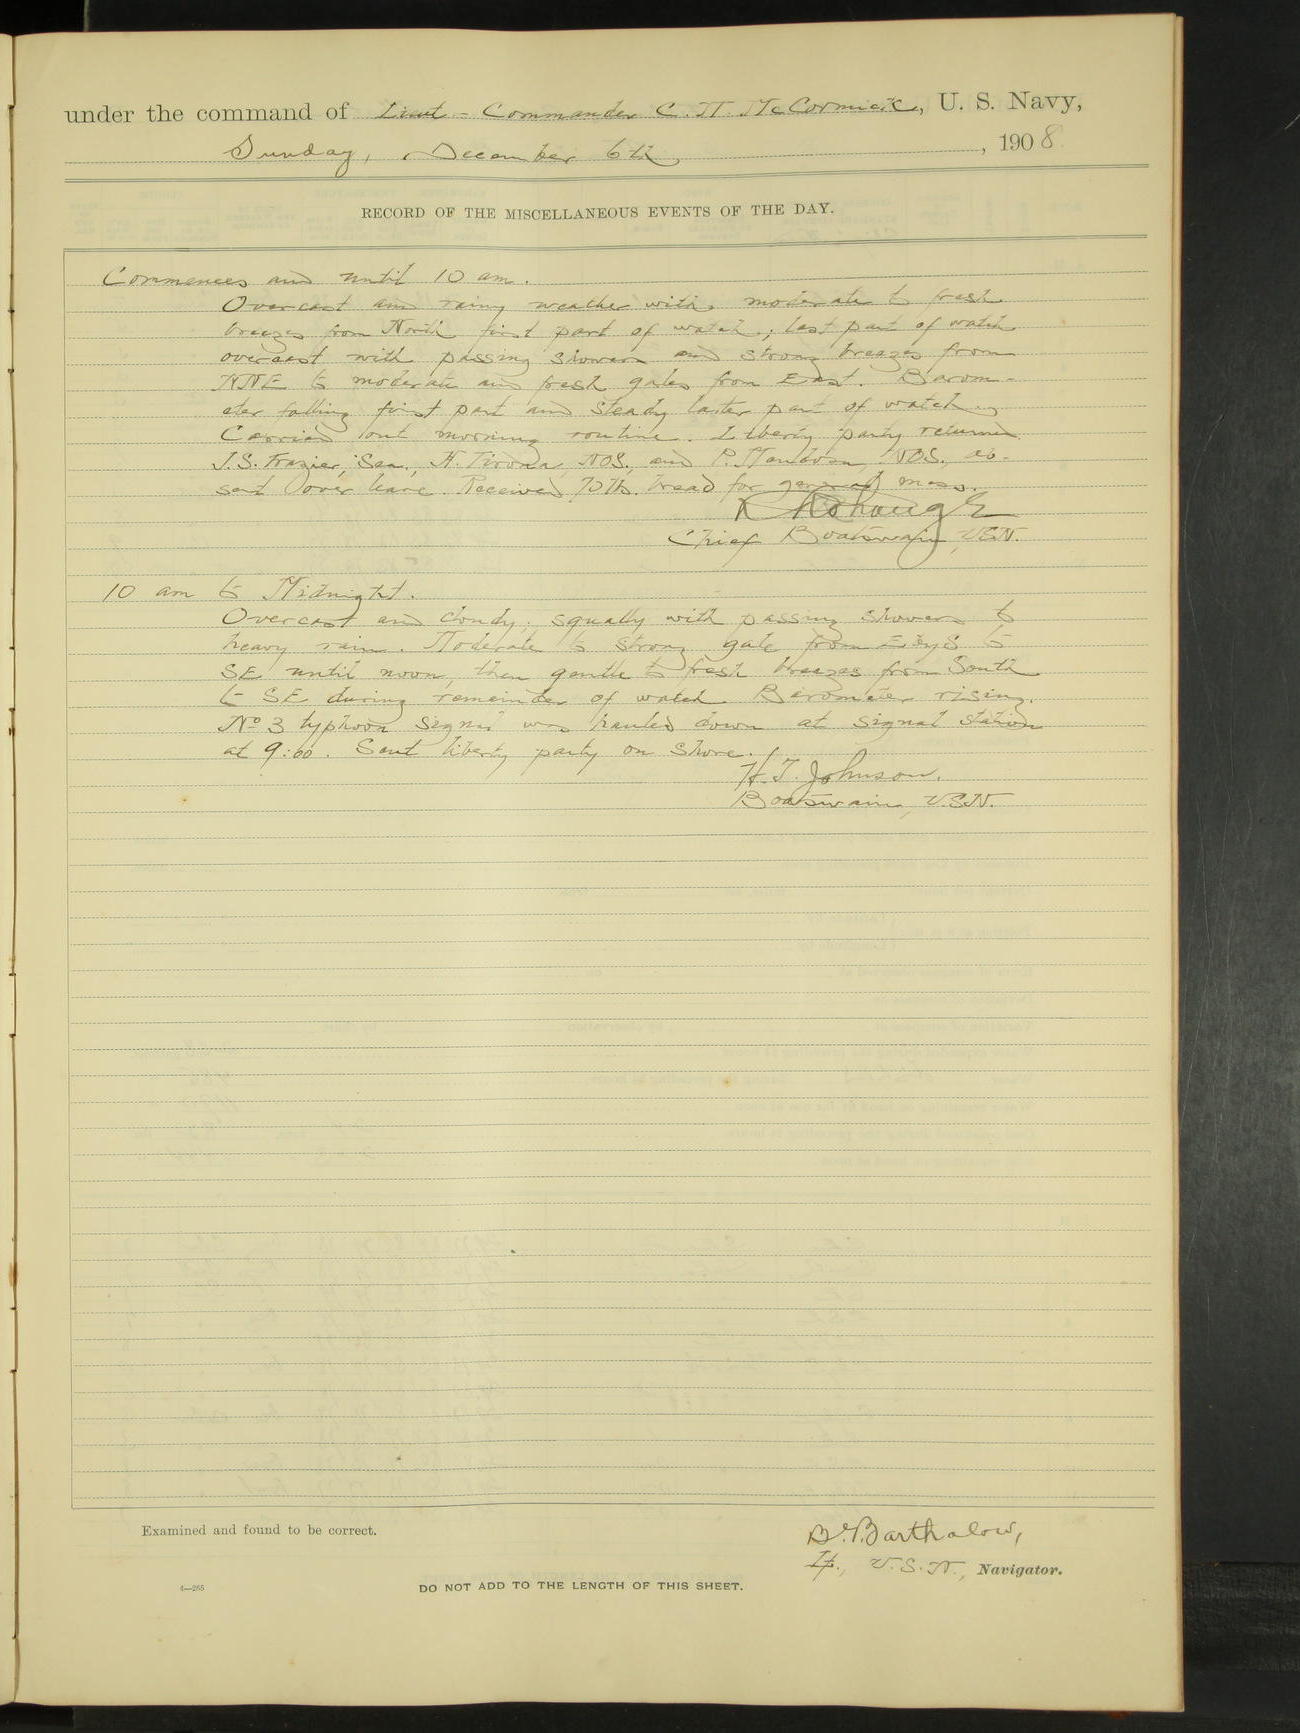 under the command of Lieut-Commander C. M. McCormick, U. S. Navy,
Sunday, December 6th, 1908
RECORD OF THE MISCELLANEOUS EVENTS OF THE DAY.
Commences and until 10 am.
Overcast and rainy weather with moderate to fresh
breezes from North first part of watch; last part of watch
overcast with passing showers and strong breezes from
NNE to moderate and fresh gales from East. Barom-
eter falling first part and steady latter part of watch.
Carried out morning routine. Liberty party returned
J.S. Frazier, Sea., H. Tirona, NOS., and P. NOS., ab-
sent over leave. Received 70 lbs. bread for general mess.
Chief Boatswain, USN.
10 am to Midnight.
Overcast and cloudy; squally with passing showers to
heavy rain. Moderate to strong gale from EbyS to
SE until noon, then gentle to fresh breezes from South
to SE during remainder of watch. Barometer rising.
No 3 typhoon signal was hauled down at signal station
at 9:00. Sent liberty party on shore.
H. T. Johnson.
Boatswain, U.S.N.
Examined and found to be correct.
Barthalow,
Lt., U.S.N., Navigator.
4—265
DO NOT ADD TO THE LENGTH OF THIS SHEET.